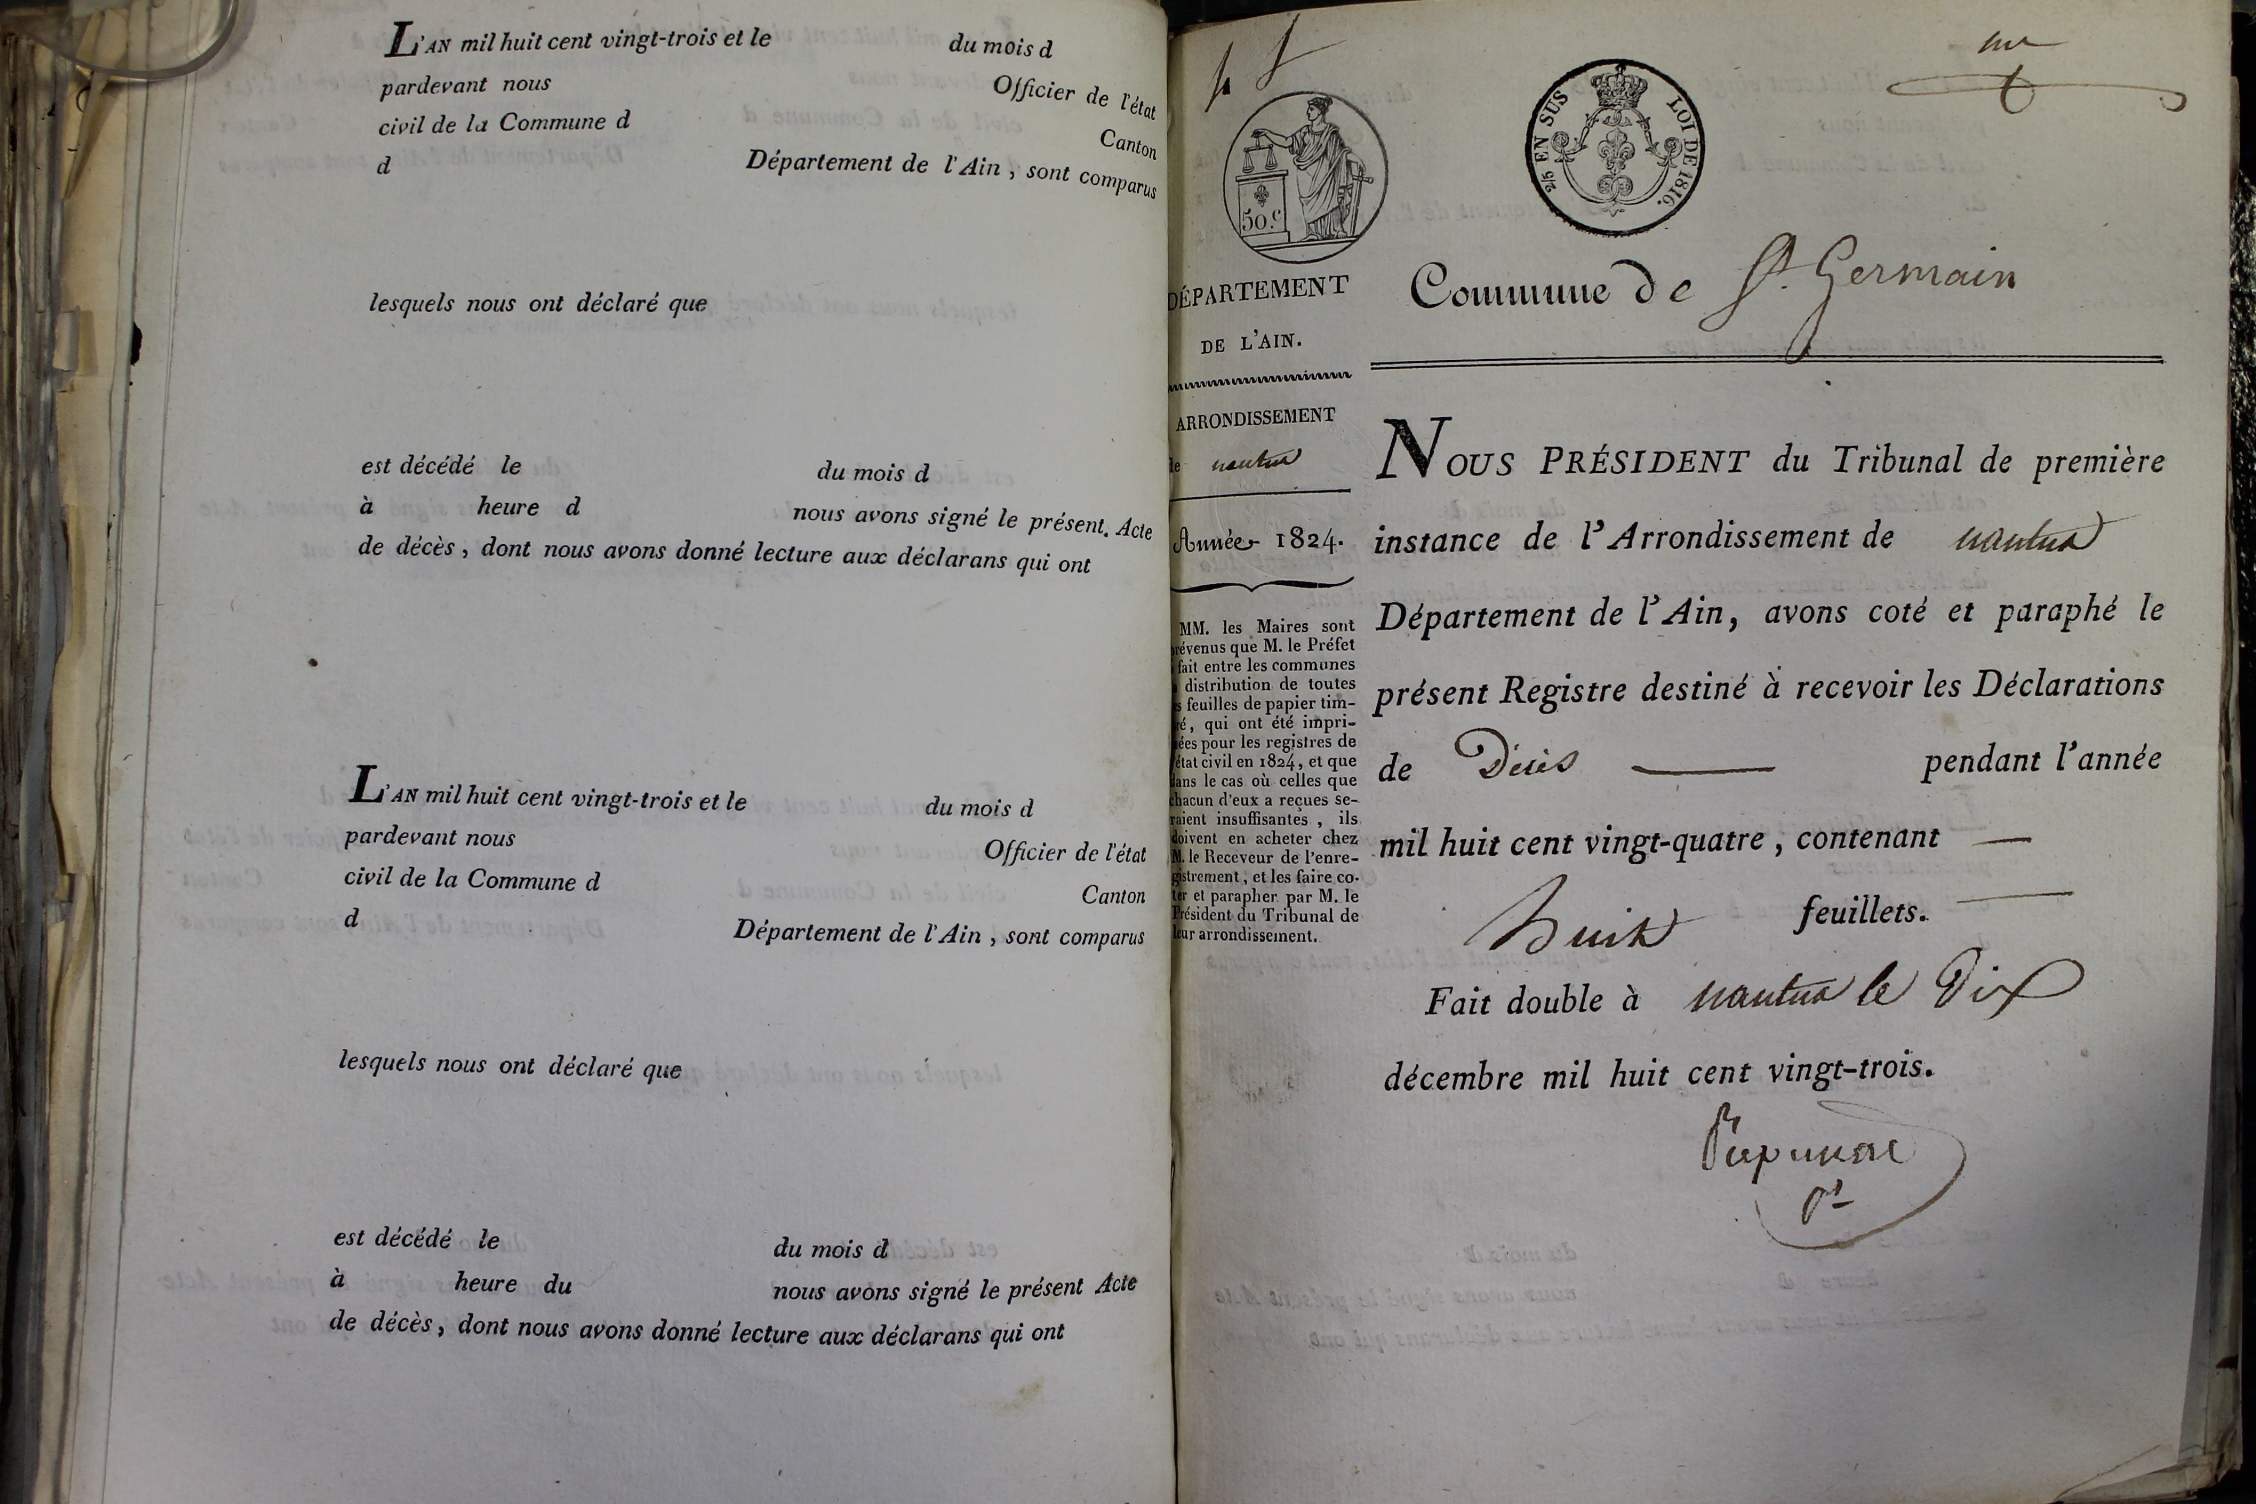 L'AN mil huit cent vingt-trois et le du mois d
pardevant nous Officier de l'état
civil de la Commune d Canton
d Département de l'Ain, sont comparus
lesquels nous ont déclaré que
est décédé le du mois d
à heure d nous avons signé le présent. Acte
de décès, dont nous avons donné lecture aux déclarans qui ont
L'AN mil huit cent vingt-trois et le du mois d
pardevant nous Officier de l'état
civil de la Commune d Canton
d Département de l'Ain, sont comparus
lesquels nous ont déclaré que
est décédé le du mois d
à heure du nous avons signé le présent Acte
de décès, dont nous avons donné lecture aux déclarans qui ont
50.c
2/5 EN SUS LOI DE 1816.
DÉPARTEMENT
DE L'AIN.
ARRONDISSEMENT
de nantua
Année 1824.
MM. les Maires sont
prévenus que M. le Préfet
fait entre les communes
distribution de toutes
feuilles de papier tim-
bré, qui ont été impri-
mées pour les registres de
l'état civil en 1824, et que
dans le cas où celles que
chacun d'eux a reçues se-
raient insuffisantes, ils
doivent en acheter chez
M. le Receveur de l'enre-
gistrement, et les faire co-
ter et parapher par M. le
Président du Tribunal de
leur arrondissement.
Commune de St. Germain
NOUS PRÉSIDENT du Tribunal de première
instance de l'Arrondissement de nantua
Département de l'Ain, avons coté et paraphé le
présent Registre destiné à recevoir les Déclarations
de Décès pendant l'année
mil huit cent vingt-quatre, contenant
huit feuillets.
Fait double à nantua le Dix
décembre mil huit cent vingt-trois.